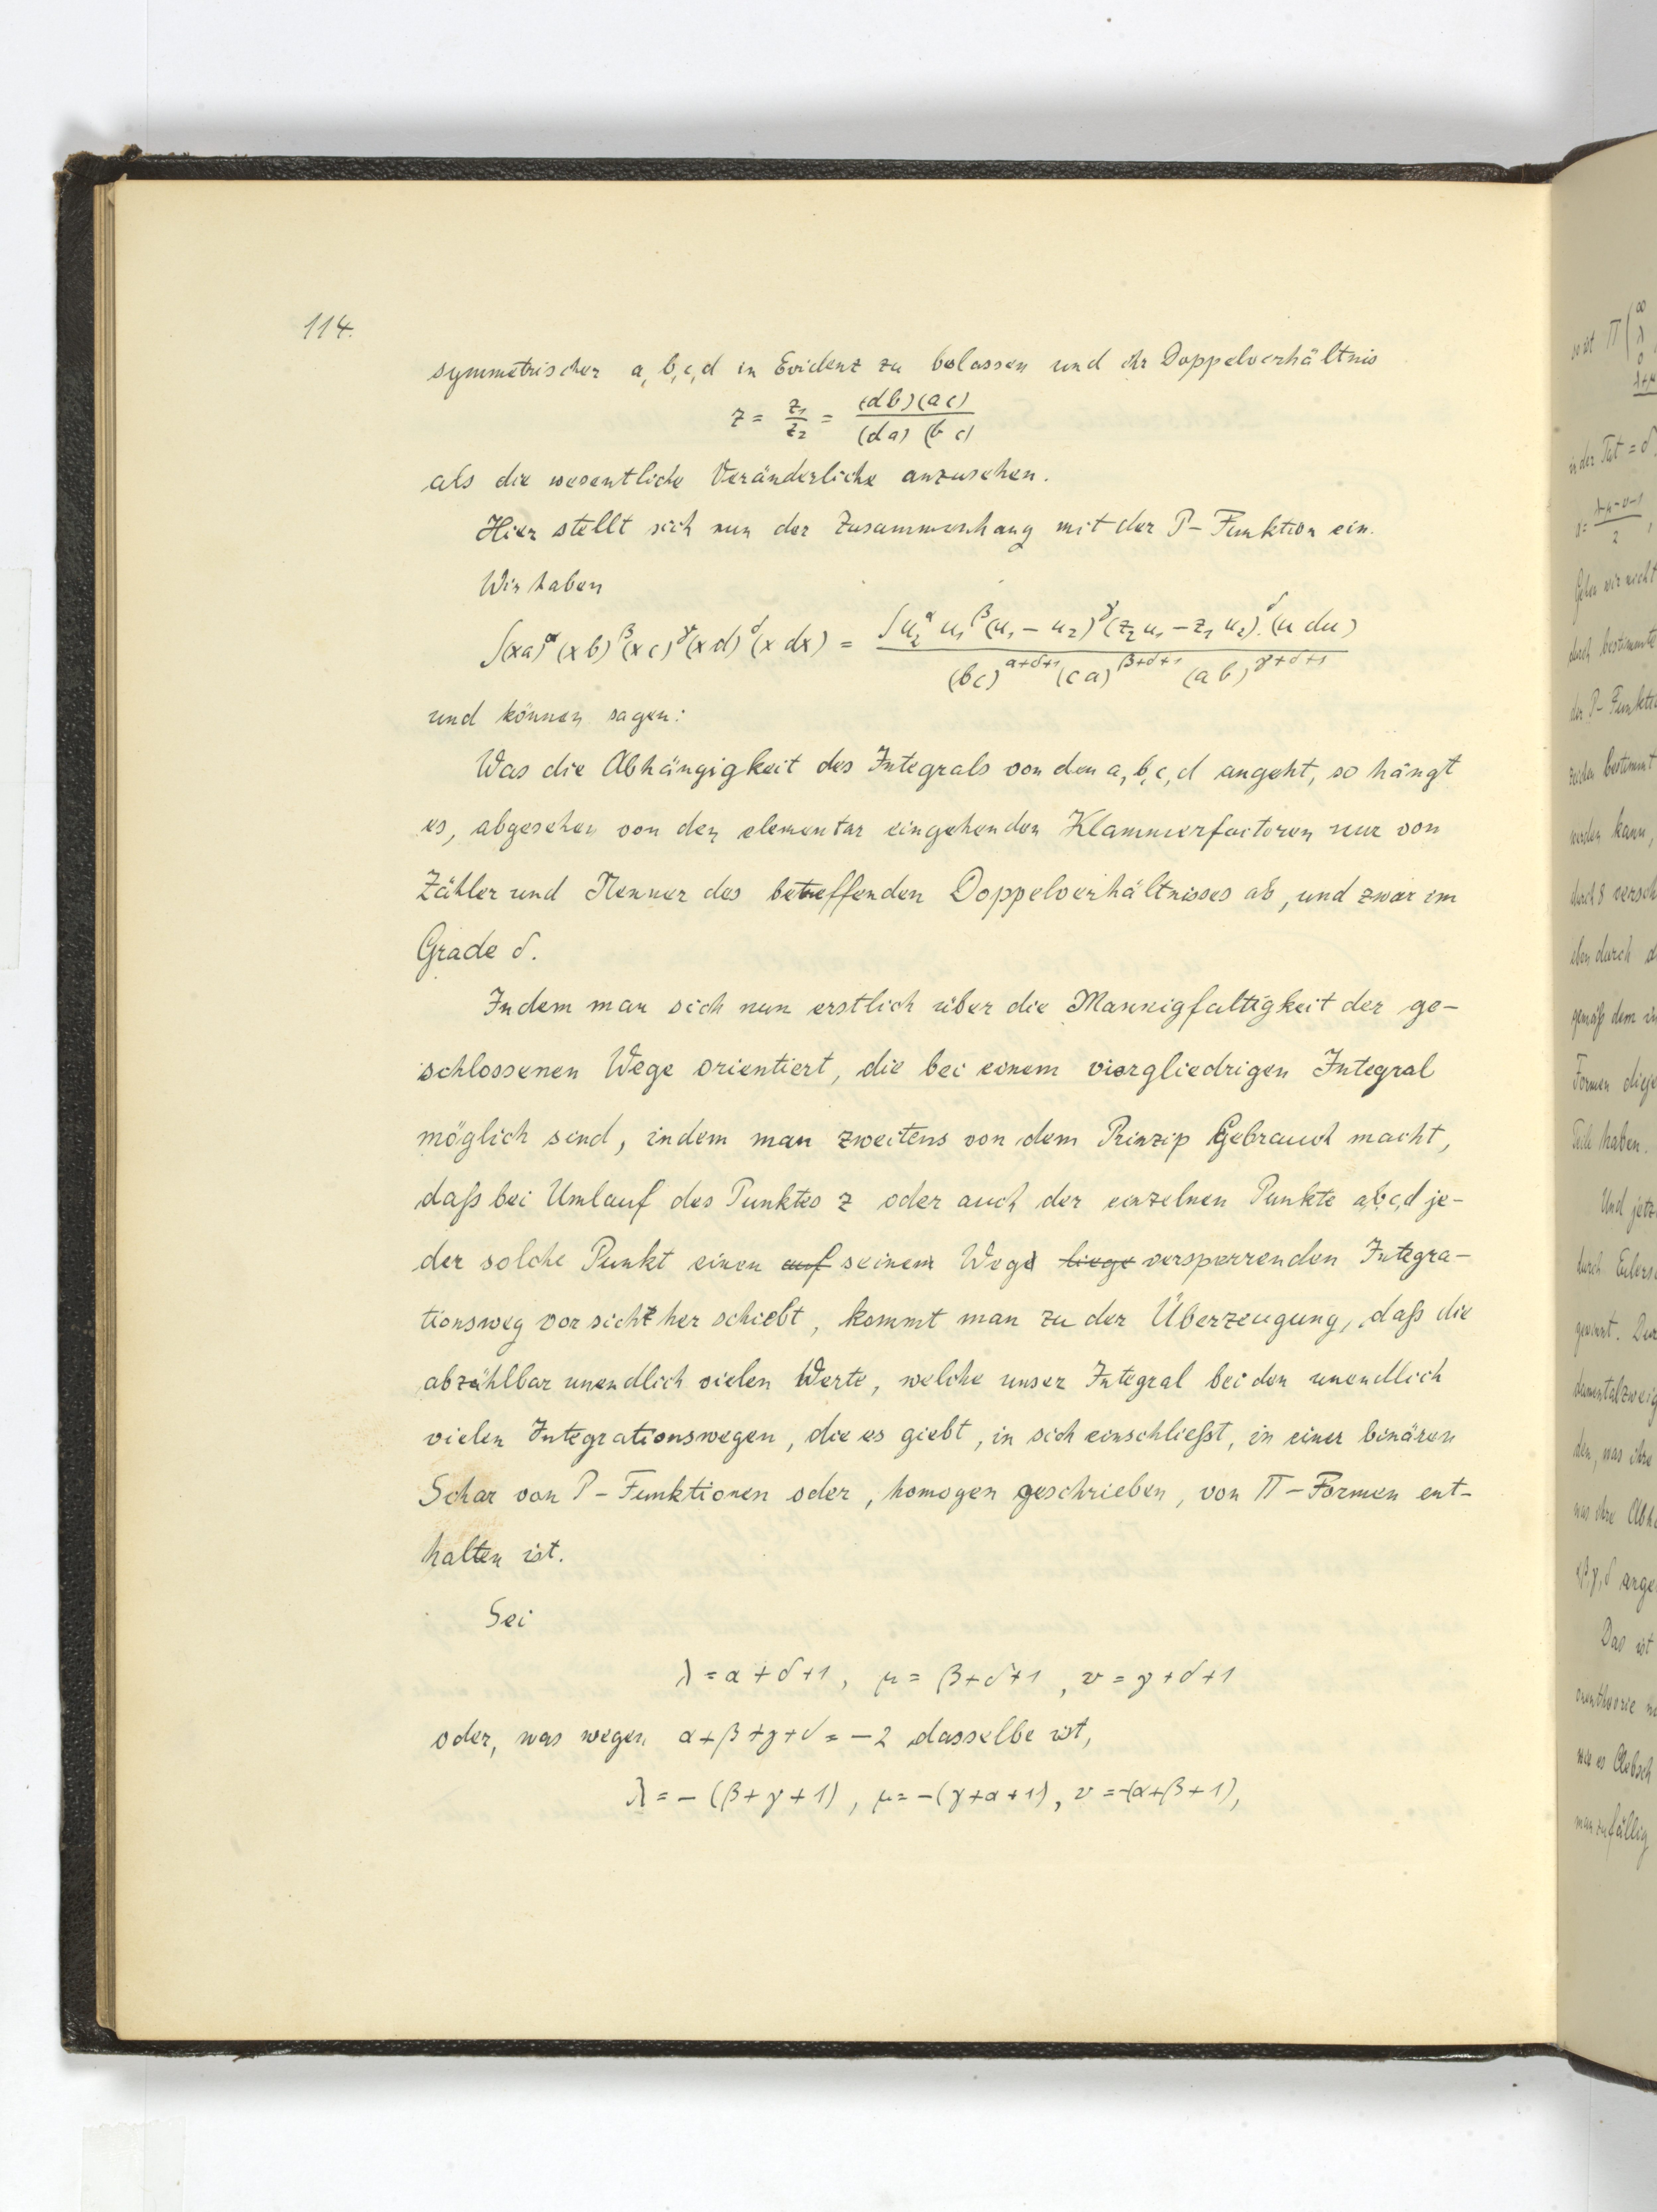 114.
symmetrischer a, b, c, d in Evidenz zu belassen und ihr Doppelverhältnis
z = z₁/z₂ = (db)(ac)/(da)(bc)
als die wesentliche Veränderliche anzusehen.
Hier stellt sich nun der Zusammenhang mit der P-Funktion ein.
Wir haben
∫(xa)^α (xb)^β (xc)^γ (xd)^δ (x dx) = ∫u₂^α u₁^β (u₁ - u₂)^γ (z₂u₁ - z₁u₂)^δ. (u du) / (bc)^{α+δ+1} (ca)^{β+δ+1} (ab)^{γ+δ+1}
und können sagen:
Was die Abhängigkeit des Integrals von den a, b, c, d angeht, so hängt
es, abgesehen von den elementar eingehenden Klammerfactoren nur von
Zähler und Nenner des betreffenden Doppelverhältnisses ab, und zwar im
Grade δ.
Indem man sich nun erstlich über die Mannigfaltigkeit der ge-
schlossenen Wege orientiert, die bei einem viergliedrigen Integral
möglich sind, indem man zweitens von dem Prinzip Gebrauch macht,
daß bei Umlauf des Punktes z oder auch der einzelnen Punkte a,b,c,d je-
der solche Punkt einen auf seinem Wege liege versperrenden Integra-
tionsweg vor sich her schiebt, kommt man zu der Überzeugung, daß die
abzählbar unendlich vielen Werte, welche unser Integral bei den unendlich
vielen Integrationswegen, die es giebt, in sich einschließt, in einer binären
Schar von P-Funktionen oder, homogen geschrieben, von Π-Formen ent-
halten ist.
Sei
λ = α + δ + 1, μ = β + δ + 1, ν = γ + δ + 1
oder, was wegen α + β + γ + δ = -2 dasselbe ist,
λ = -(β + γ + 1), μ = -(γ + α + 1), ν = -(α + β + 1),